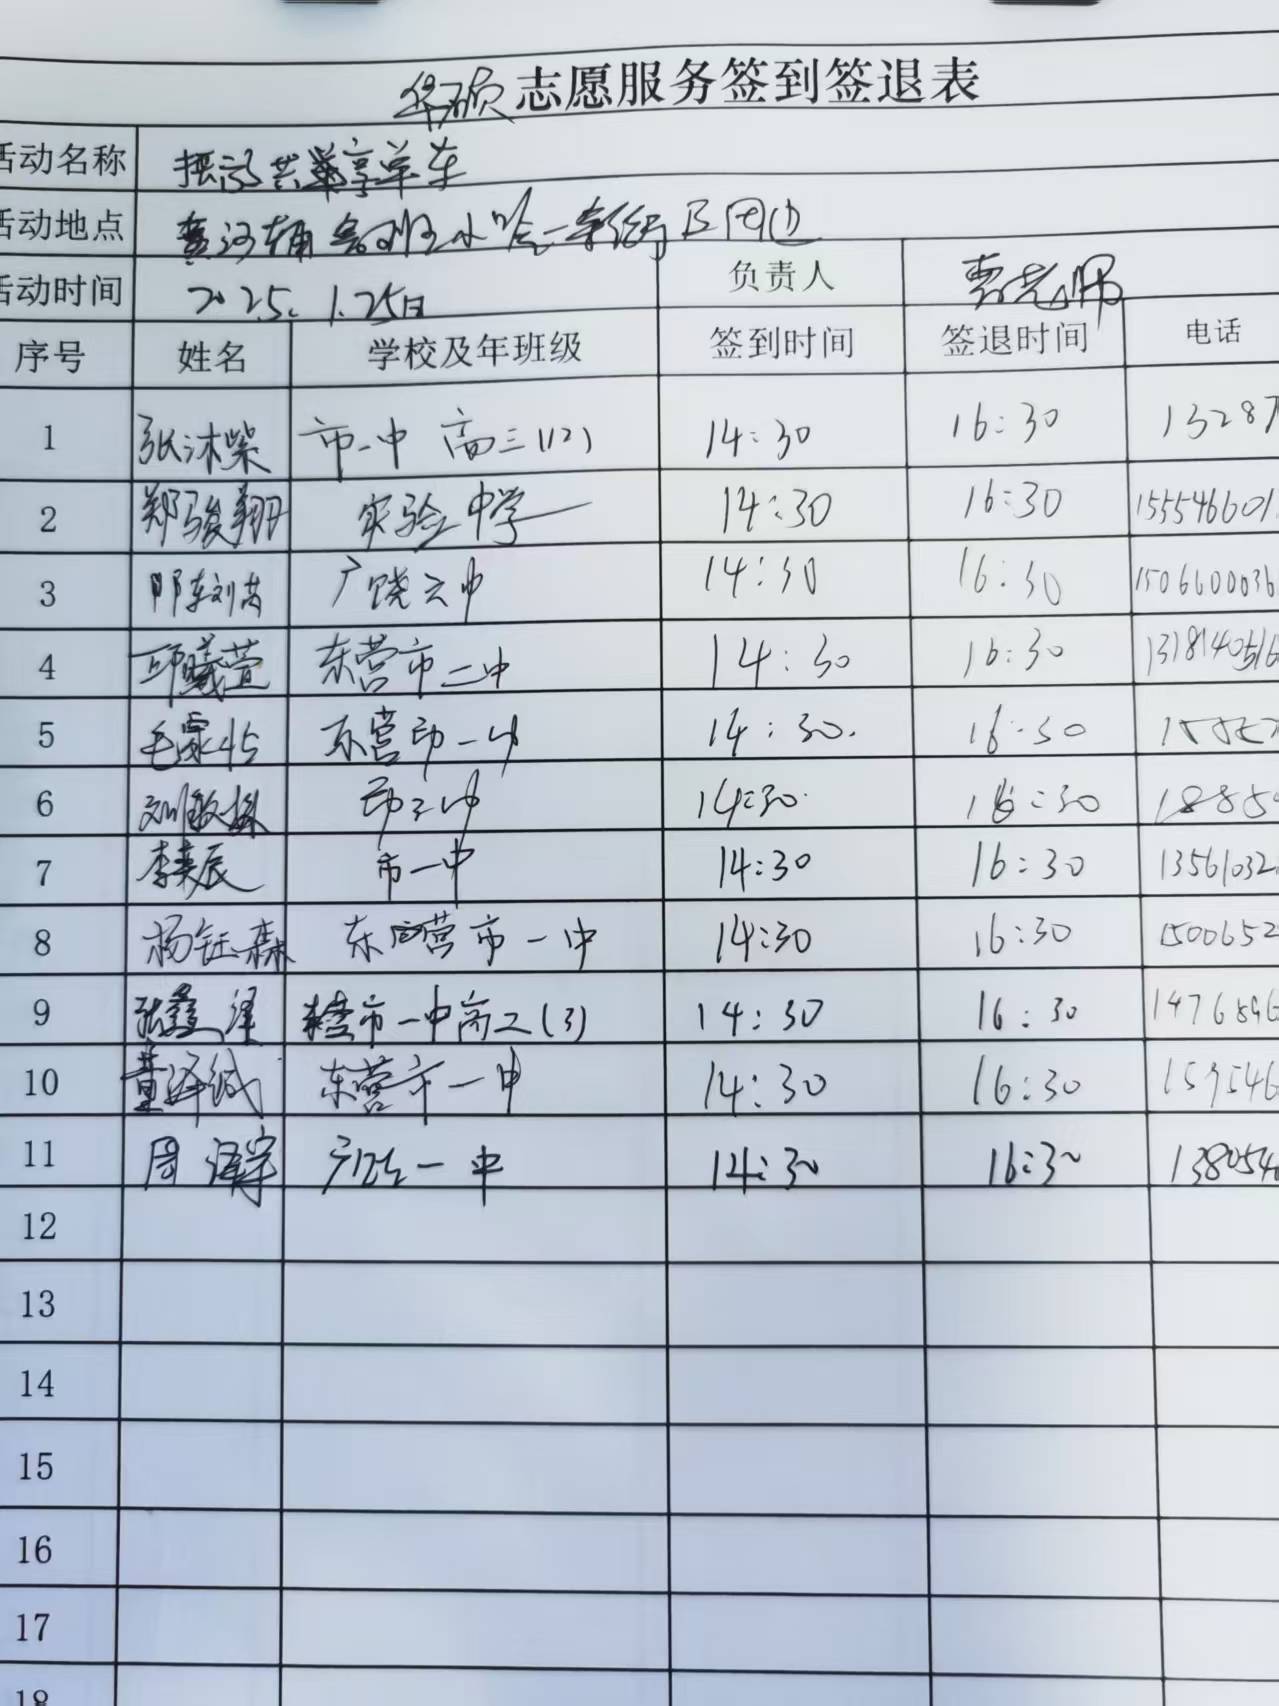 华硕志愿服务签到签退表
活动名称 共享单车
活动地点
活动时间 2025.1.25日 负责人
序号 姓名 学校及年班级 签到时间 签退时间 电话
1 张沐紫 市一中 高三(12) 14:30 16:30 13287
2 郑骏翔 实验中学 14:30 16:30 155546601
3 广饶 中 14:30 16:30 1506600036
4 邱曦萱 东营市二中 14:30 16:30 1318140516
5 毛 东营市一中 14:30. 16:30
6 刘 市 中 14:30 16:30 1885
7 李奕辰 市一中 14:30 16:30 13561032
8 杨钰森 东营市一中 14:30 16:30 1500652
9 张鑫泽 东营市一中高二(3) 14:30 16:30 1476896
10 董泽诚 东营市一中 14:30 16:30 159546
11 周泽宇 广饶一中 14:30 16:30 1380546
12
13
14
15
16
17
18